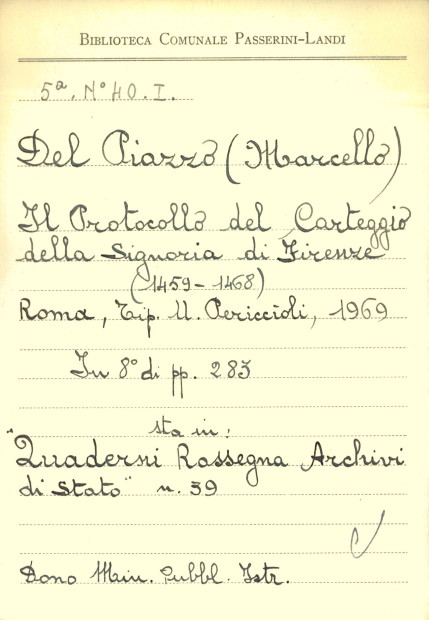 BIBLIOTECA COMUNALE PASSERINI-LANDI
5ª. N° 40. I.
Del Piazzo (Marcello)
Il Protocollo del Carteggio
della Signoria di Firenze
(1459-1468)
Roma, Tip. U. Periccioli, 1969
In 8° di pp. 283
sta in:
"Quaderni Rassegna Archivi
di Stato" n. 39
Dono Min. Pubbl. Istr.